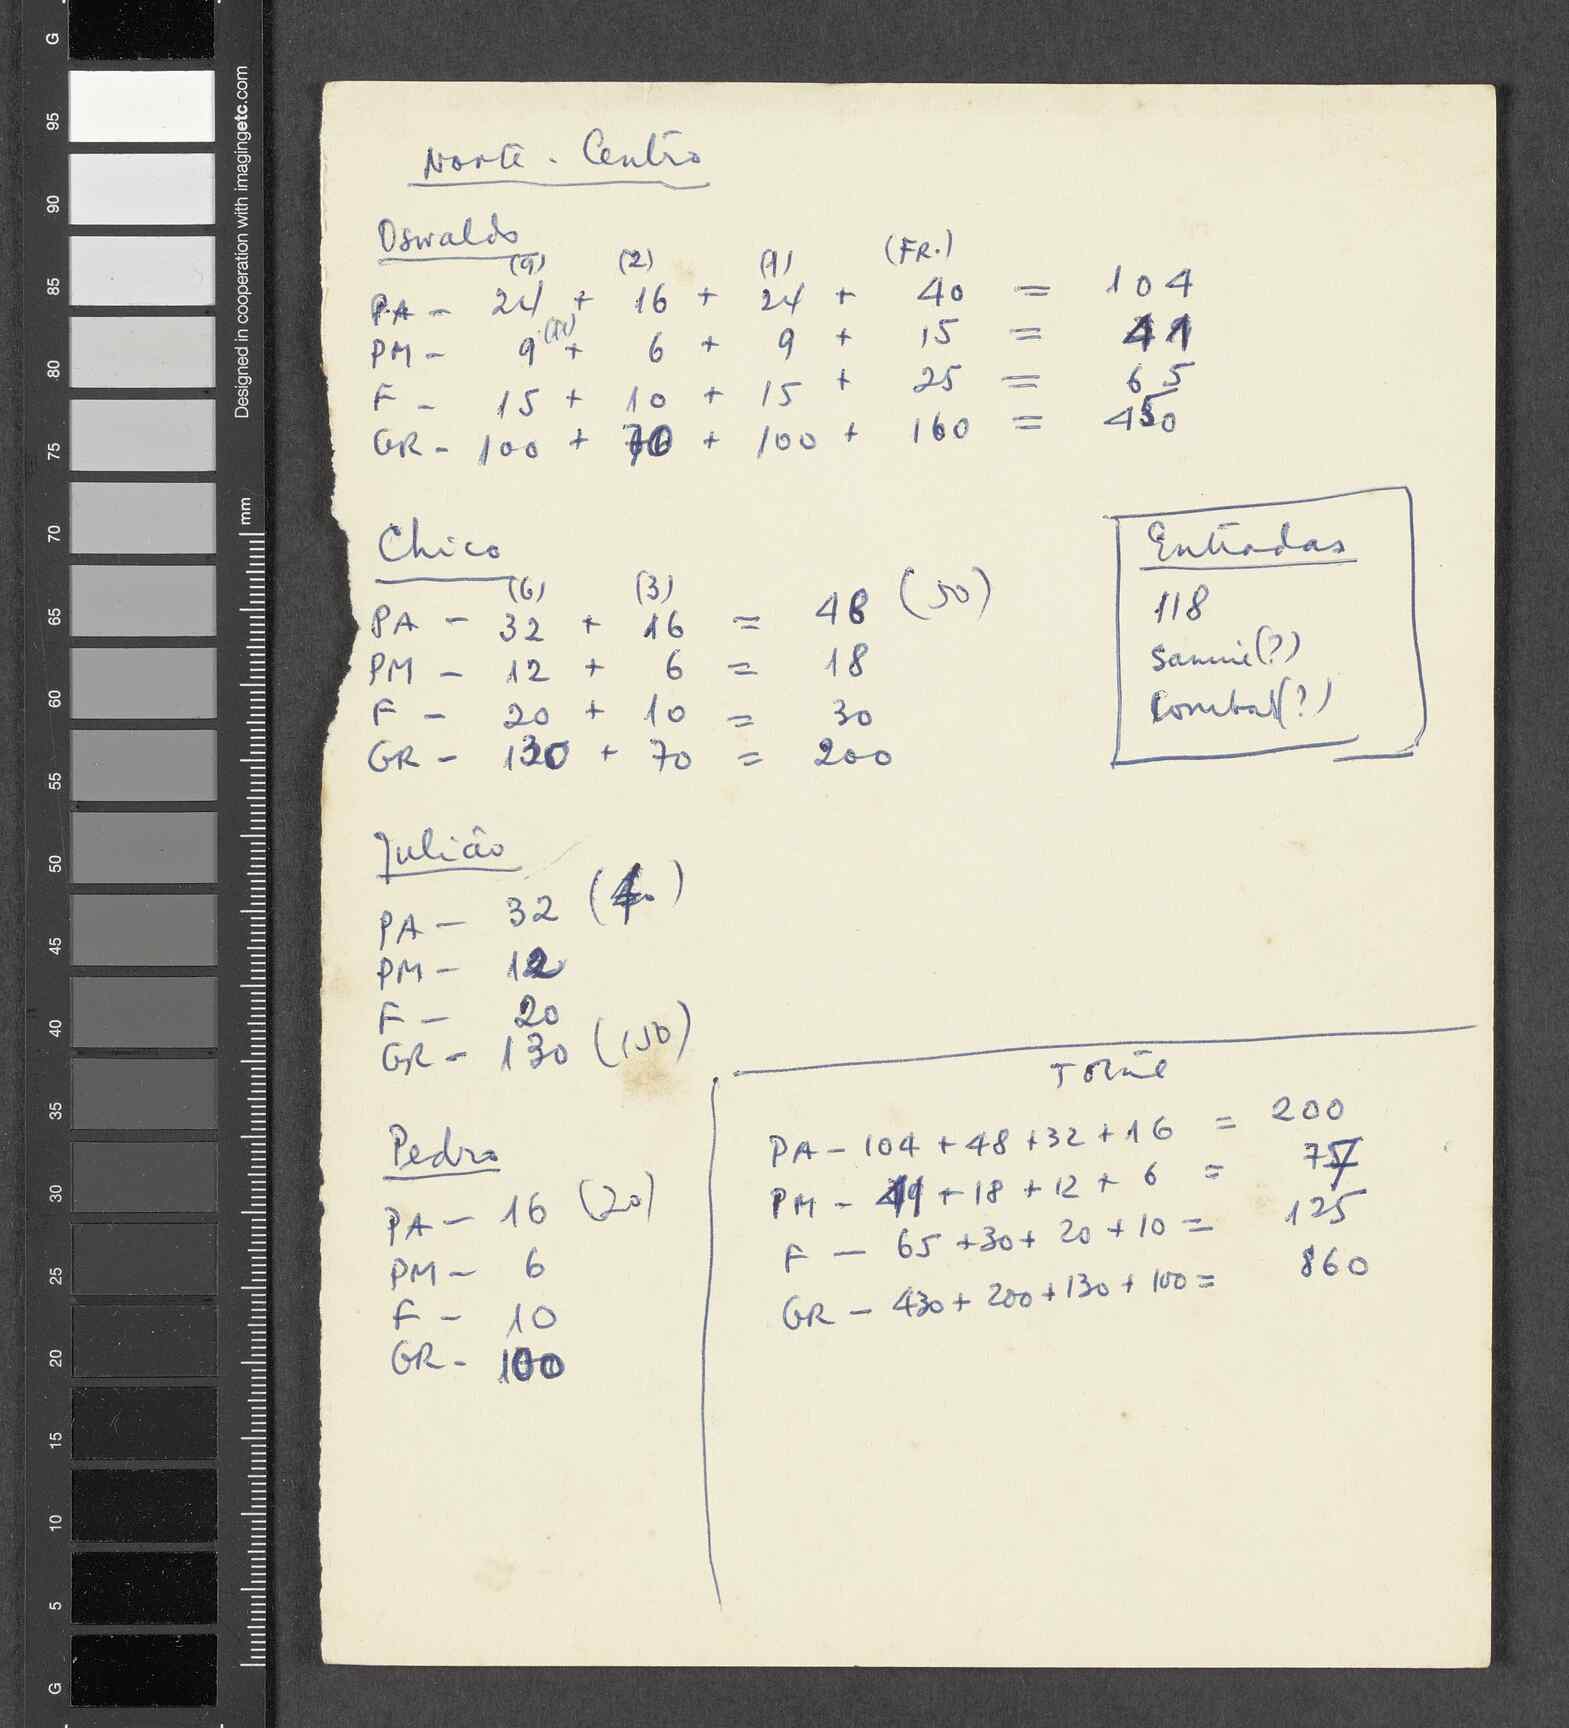 Norte - Centro
Oswaldo
(9) (2) (1) (FR.)
PA - 24 + 16 + 24 + 40 = 104
PM - 9 + 6 + 9 + 15 = 41
F - 15 + 10 + 15 + 25 = 65
GR - 100 + 70 + 100 + 160 =
Chico
(6) (3)
PA - 32 + 16 = 48 (50)
PM - 12 + 6 = 18
F - 20 + 10 = 30
GR - 130 + 70 = 200
Entradas
118
Julião
PA - 32
PM - 12
F - 20
GR - 130 (150)
Pedro
PA - 16 (20)
PM - 6
F - 10
GR - 100
PA - 104 + 48 + 32 + 16 = 200
PM - 41 + 18 + 12 + 6 = 77
F - 65 + 30 + 20 + 10 = 125
GR - 430 + 200 + 130 + 100 = 860
G
95
90
85
80
75
70
65
60
55
50
45
40
35
30
25
20
15
10
5
G
Designed in cooperation with imagingetc.com
mm